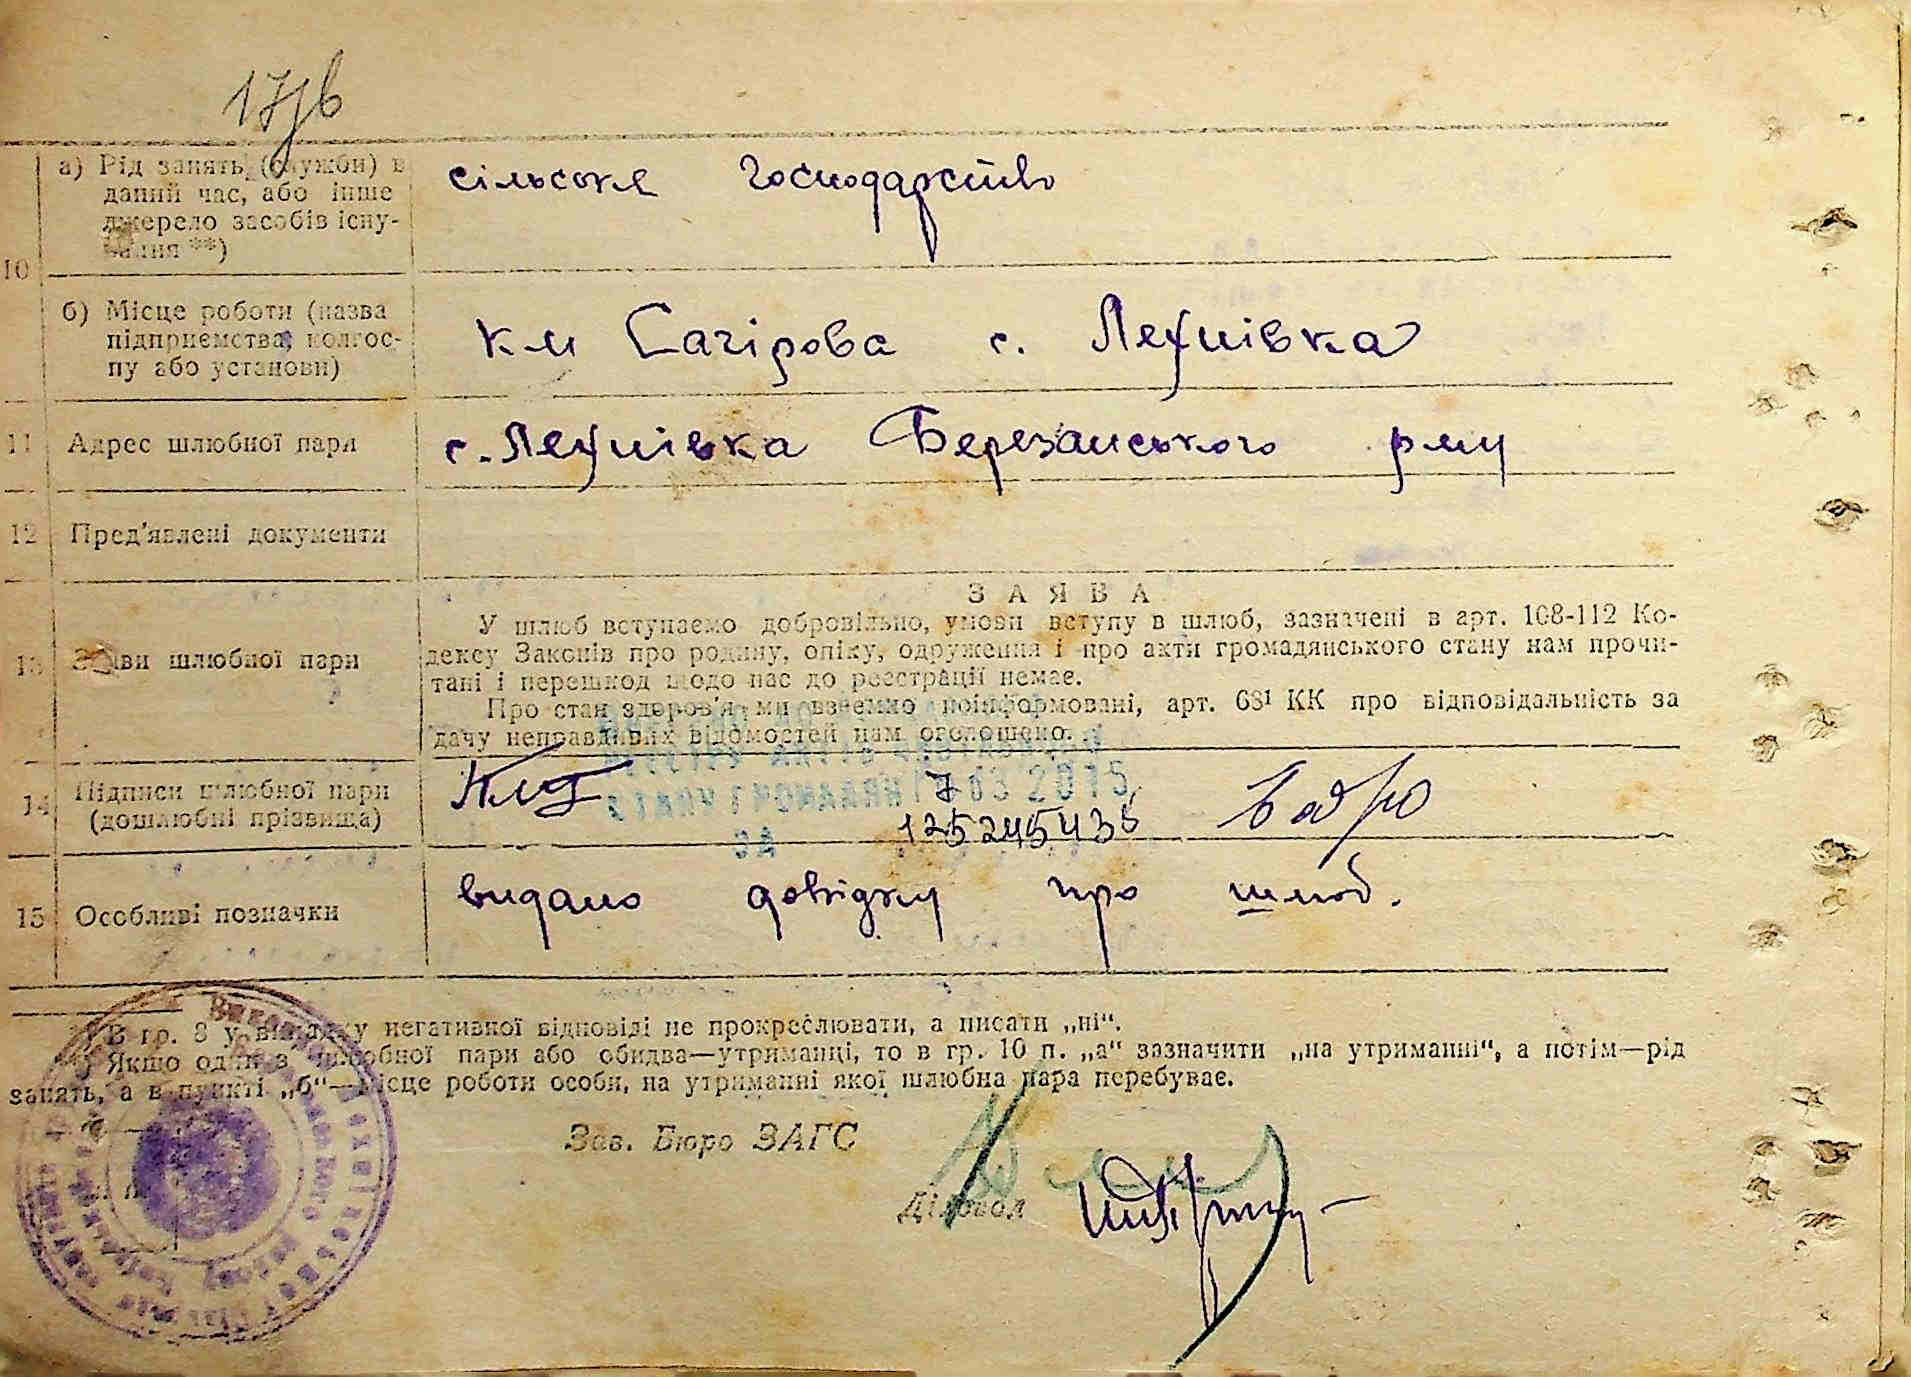 17зв
а) Рід занять (служби) в
даний час, або інше
джерело засобів існу-
вання **)
сільське господарство
10
б) Місце роботи (назва
підприємства, колгос-
пу або установи)
к-п Сагірова с. Лехнівка
11 Адрес шлюбної пари
с. Лехнівка Березанського р-ну
12 Пред'явлені документи
13 Заяви шлюбної пари
ЗАЯВА
У шлюб вступаємо добровільно, умови вступу в шлюб, зазначені в арт. 108-112 Ко-
дексу Законів про родину, опіку, одруження і про акти громадянського стану нам прочи-
тані і перешкод щодо нас до реєстрації немає.
Про стан здоров'я ми взаємно поінформовані, арт. 68¹ КК про відповідальність за
дачу неправдивих відомостей нам оголошено.
14 Підписи шлюбної пари
(дошлюбні прізвища)
03 2015
ЗА
15 Особливі позначки
видано довідку про шлюб.
*) В гр. 8 у випадку негативної відповіді не прокреслювати, а писати „ні“.
**) Якщо один з шлюбної пари або обидва—утриманці, то в гр. 10 п. „а“ зазначити „на утриманні“, а потім—рід
занять, а в пункті „б“—місце роботи особи, на утриманні якої шлюбна пара перебуває.
Зав. Бюро ЗАГС
Діловод